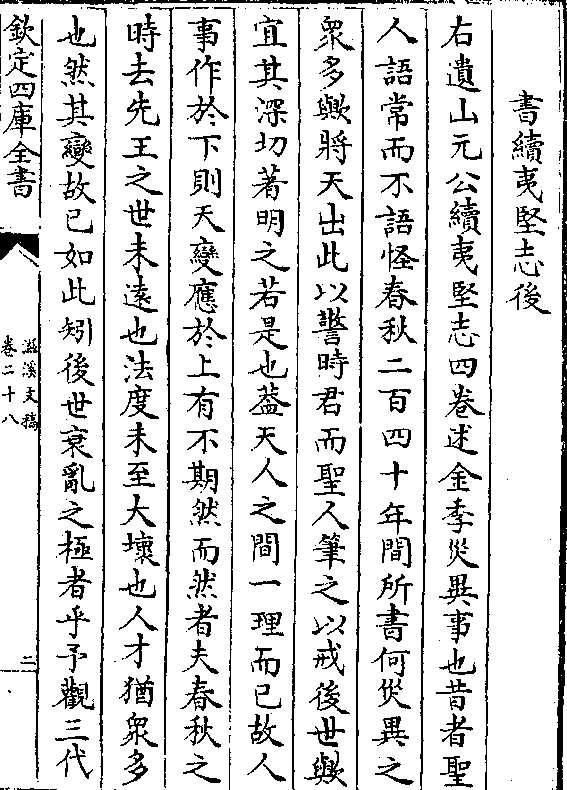 書續夷堅志後
右遺山元公續夷堅志四卷述金季災異事也昔者聖
人語常而不語怪春秋二百四十年間所書何災異之
衆多歟將天出此以警時君而聖人筆之以戒後世歟
宜其深切著明之若是也葢天人之間一理而已故人
事作於下則天變應於上有不期然而然者夫春秋之
時去先王之世未逺也法度未至大壞也人才猶衆多
也然其變故已如此矧後世衰亂之極者乎予觀三代
欽定四庫全書
滋溪文稿
卷二十八
二